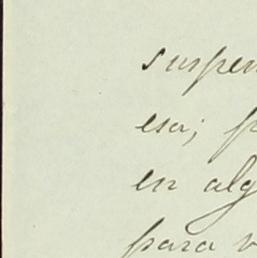 suspen
esa; p
en alg
para v